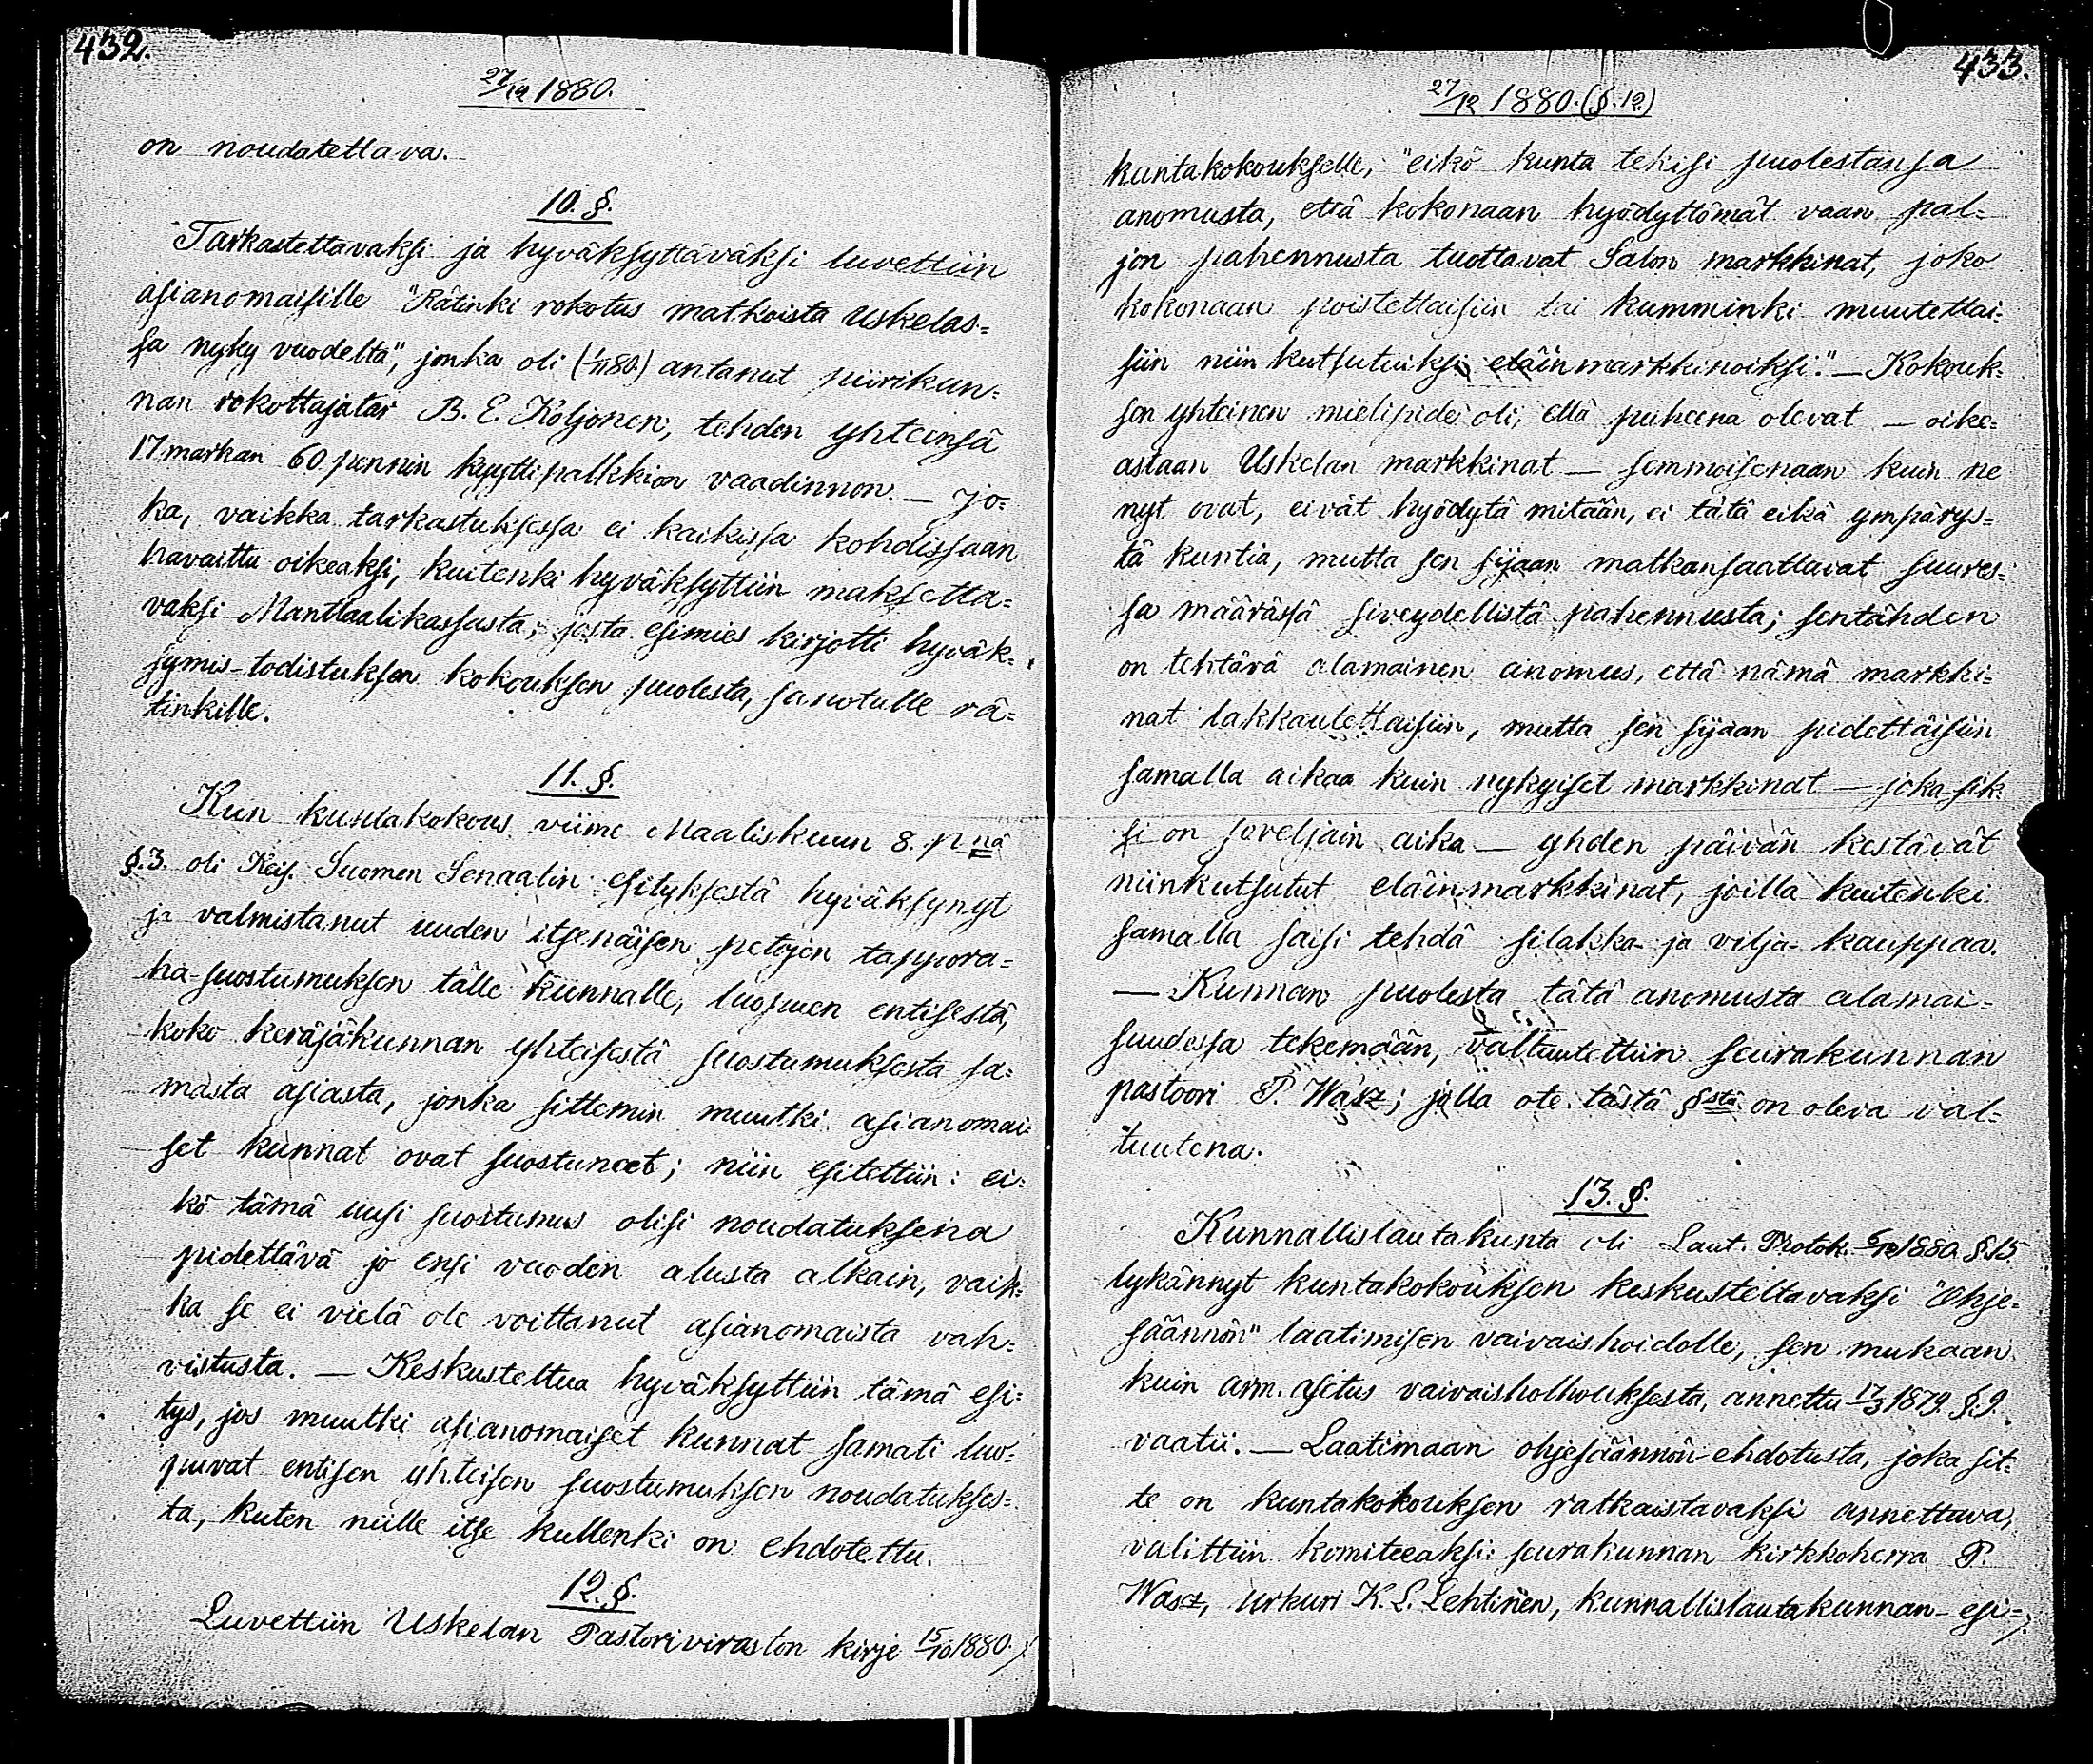 432.
27/12 1880.
on noudatettava.
10. §.
Tarkastettavaksi ja hyväksyttäväksi luvettiin
asianomaisille "Rätinki rokotus matkoista Uskelas=
sa nyky vuodelta", jonka oli (1/11 80.) antanut piirikun=
nan rokottajatar B. E. Koljonen, tehden yhteensä
17 markan 60 pennin kyyttipalkkion vaadinnon. — Jo=
ka, vaikka tarkastuksessa ei kaikissa kohdissaan
havaittu oikeaksi, kuitenki hyväksyttiin maksetta=
vaksi Manttaalikassasta, josta esimies kirjotti hyväk=
symis-todistuksen kokouksen puolesta, sanotulle rä=
tinkille.
11. §.
Kun kuntakokous viime Maaliskuun 8. p:nä
§. 3. oli Keis. Suomen Senaatin esityksestä hyväksynyt
ja valmistanut uuden itsenäisen petojen tappora=
ha-suostumuksen tälle kunnalle, luopuen entisestä,
koko keräjäkunnan yhteisestä suostumuksesta sa=
masta asiasta, jonka sittemin muutki asianomai=
set kunnat ovat suostuneet; niin esitettiin: ei=
kö tämä uusi suostumus olisi noudatuksena
pidettävä jo ensi vuoden alusta alkain, vaik=
ka se ei vielä ole voittanut asianomaista vah=
vistusta. — Keskusteltua hyväksyttiin tämä esi=
tys, jos muutki asianomaiset kunnat samati luo=
puvat entisen yhteisen suostumuksen noudatukses=
ta, kuten niille itse kullenki on ehdotettu.
12. §.
Luvettiin Uskelan Pastoriviraston kirje 15/10 1880.
433.
27/12 1880. (§. 12)
kuntakokoukselle, "eikö kunta tekisi puolestansa
anomusta, että kokonaan hyödyttömät vaan pal=
jon pahennusta tuottavat Salon markkinat, joko
kokonaan poistettaisiin tai kumminki muutettai=
siin niin kutsutuiksi eläinmarkkinoiksi." — Kokouk=
sen yhteinen mielipide oli, että puheena olevat — oike=
astaan Uskelan markkinat — semmoisenaan kuin ne
nyt ovat, eivät hyödytä mitään, ei tätä eikä ympärys=
tä kuntia, mutta sen sijaan matkansaattavat suures=
sa määrässä siveydellistä pahennusta; sentähden
on tehtävä alamainen anomus, että nämä markki=
nat lakkautettaisiin, mutta sen sijaan pidettäisiin
samalla aikaa kuin nykyiset markkinat — joka sik=
si on soveljain aika — yhden päivän kestävät
niinkutsutut eläinmarkkinat, joilla kuitenki
samalla saisi tehdä silakka- ja vilja- kauppaa.
— Kunnan puolesta tätä anomusta alamai=
suudessa tekemään, valtuutettiin seurakunnan
pastoori P. Wasz; jolla ote tästä §:stä on oleva val=
tuutena.
13. §.
Kunnallislautakunta oli Laut. Protok. 6/12 1880. §. 15.
lykännyt kuntakokouksen keskusteltavaksi "Ohje=
säännön" laatimisen vaivaishoidolle, sen mukaan
kuin arm. asetus vaivaisholhouksesta, annettu 17/3 1879. §. 9.
vaatii. — Laatimaan ohjesäännön-ehdotusta, joka sit=
te on kuntakokouksen ratkaistavaksi annettava,
valittiin komiteeaksi: seurakunnan kirkkoherra P.
Wasz, urkuri K. L. Lehtinen, kunnallislautakunnan-esi=